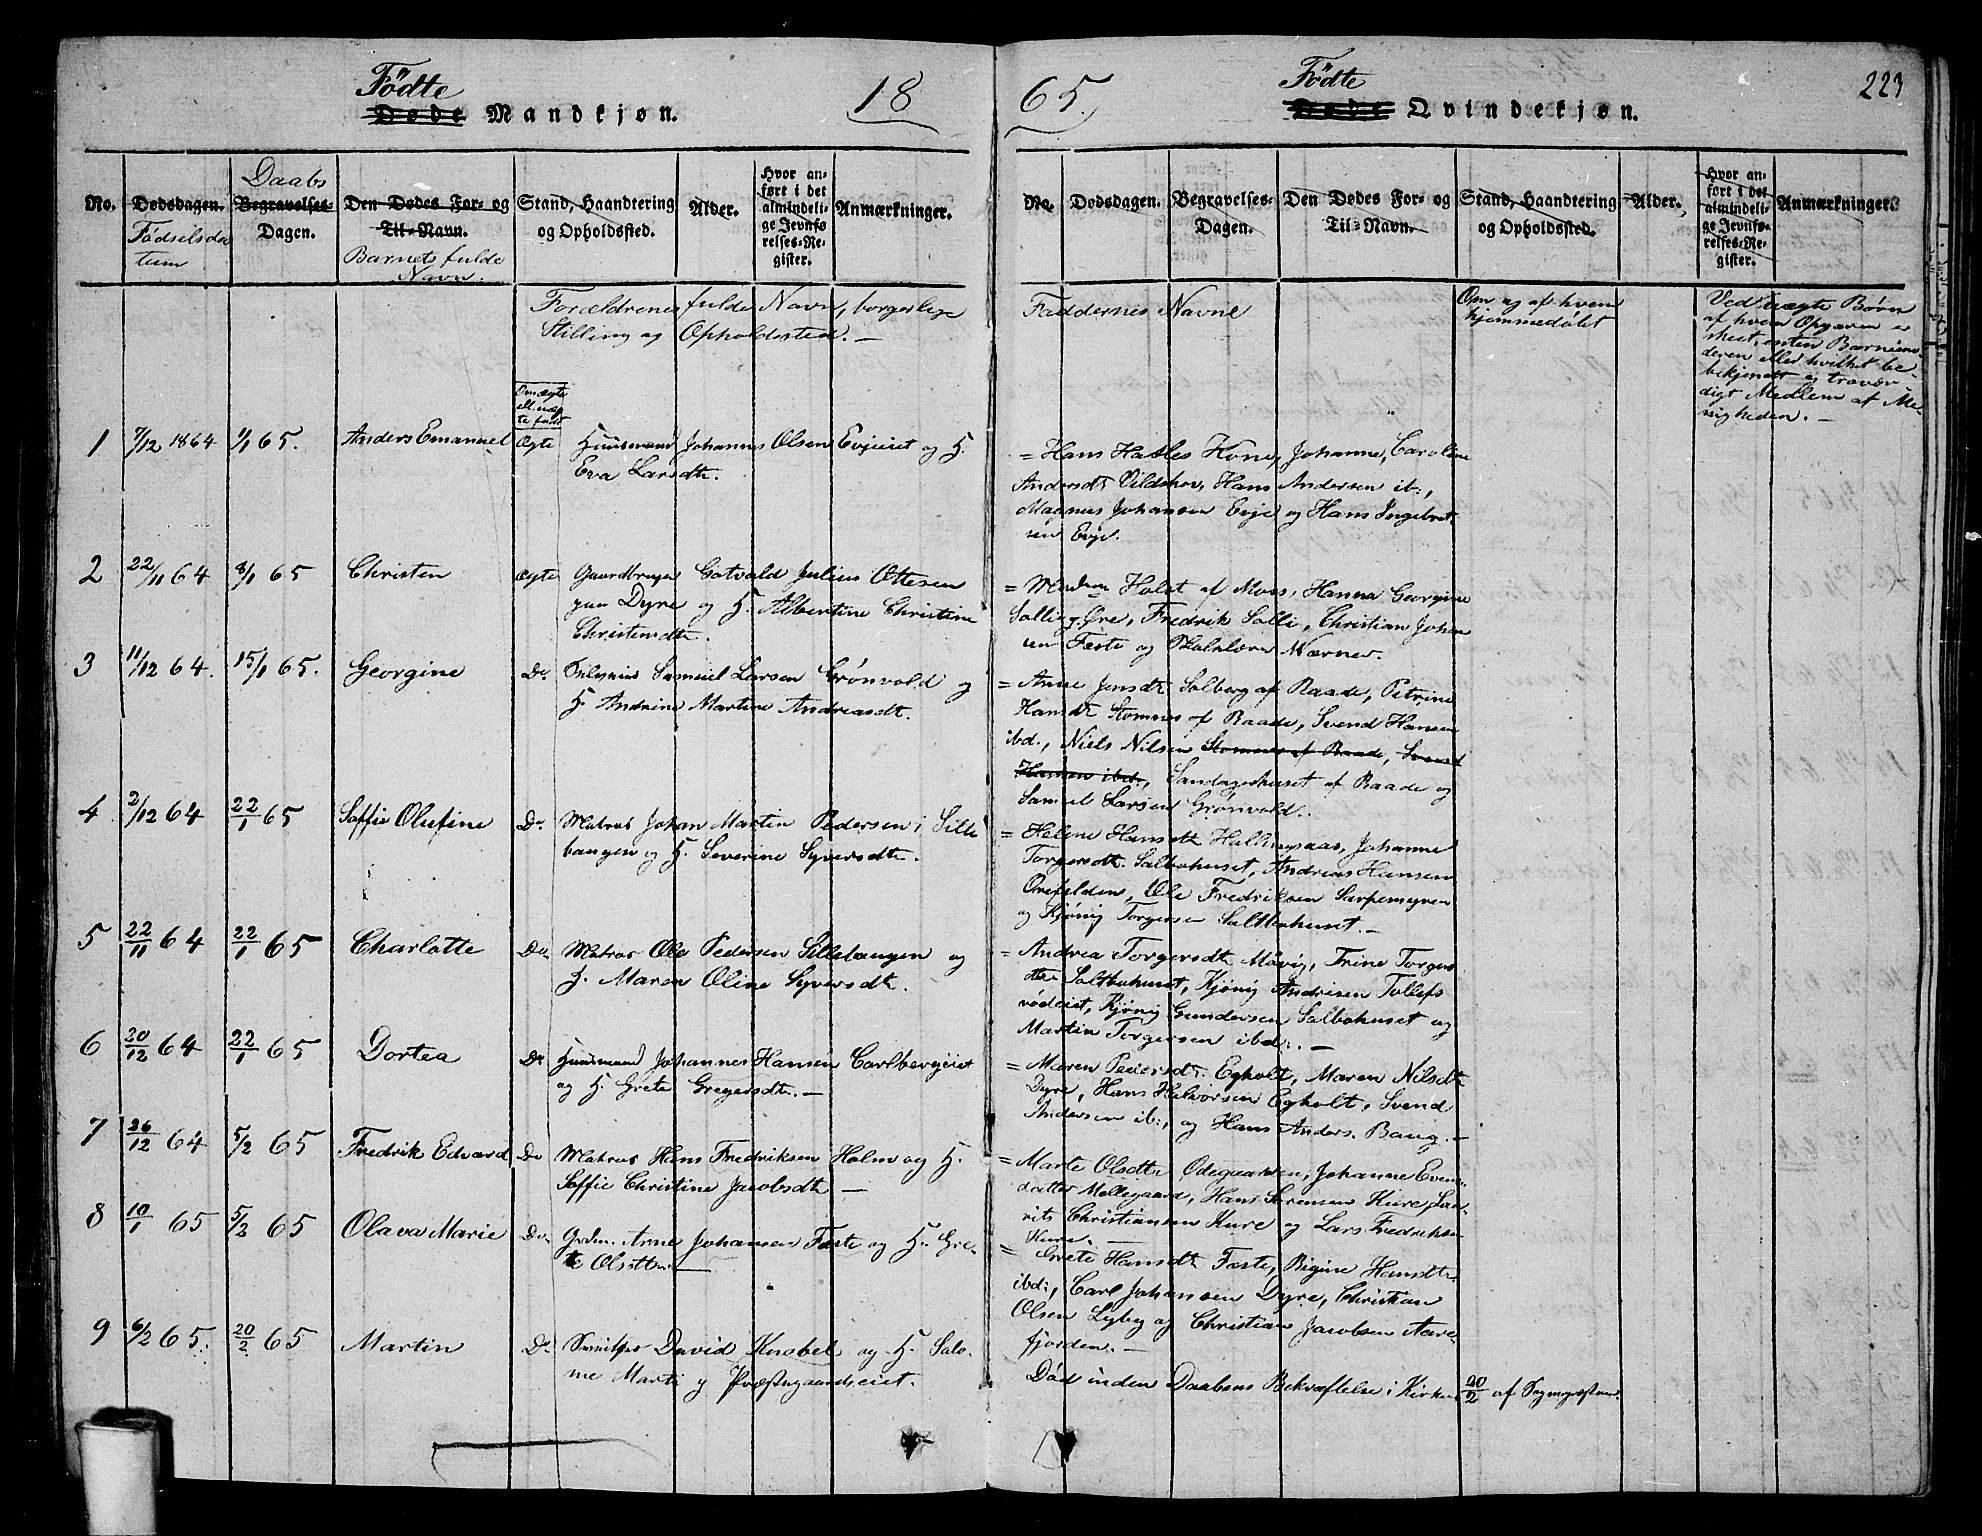 Födte
Døde Mandkjøn.
18
65.
Födte
Døde Qvindekjøn.
223
No.
Dødsdagen.
Fødselsda
tum
Daabs
Begravelses-
Dagen.
Den Dødes For- og
Til-Navn.
Barnets fulde
Navn.
Stand, Haandtering
og Opholdssted.
Alder.
Hvor an-
ført i det
almindeli-
ge Jevnfø-
relses-Re-
gister.
Anmærkninger.
No.
Dødsdagen.
Begravelses-
Dagen.
Den Dødes For- og
Til-Navn.
Stand, Haandtering
og Opholdssted.
Alder.
Hvor an-
ført i det
almindeli-
ge Jevnfø-
relses-Re-
gister.
Anmærkninger.
Forældrenes fulde Navn, borgerlige
Stilling og Opholdssted. —
Faddernes Navne
Om og af hvem
hjemmedøbt
Ved uægte Børn
af hvem Opgaven er
skeet, enten Barnemo-
deren eller hvilket be-
bekjendt og trovær-
digt Medlem af Me-
nigheden. —
Om ægte
ell. uæg-
te født
1 7/12 1864 1/1 65. Anders Emanuel Ægte Huusmand Johannes Olsen Evjeiet og H.
Eva Larsdtr.
= Hans Hables Kone, Johanne, Caroline
Andersdtr Vildskov, Hans Andersen ib:,
Magnus Johansen Evje og Hans Ingebret
sen Evje.
2 22/11 64 8/1 65 Christen Ægte Gaardbruger Gotvald Julius Ottesen
paa Dyre og H. Albertine Christine
Christensdtr.
= Madam Holst af Moss, Hanna Georgine
Salling Øre, Fredrik Salli, Christian Johan
sen Fæste og Værner.
3 11/12 64. 15/1 65. Georgine Do. Samuel Larsen Grönvold og
H. Andrine Martine Andreasdt.
= Anne Jensdtr Solberg af Raade, Petrine
Hansdtr Stomnes af Raade, Svend Hansen
ibd., Niels Nilsen Stomnes af Raade, Svend
Hansen ibd., Sandagerhuset af Raade og
Samuel Larsen Grönvold.
4 2/12 64 22/1 65 Soffie Olufine Do. Matros Johan Martin Pedersen i Sille
baugen og H. Severine Syversdtr.
= Helene Hansdtr Halmysaas, Johanne
Torgersdtr. Saltbohuset, Andreas Hansen
Orefelden, Ole Fredriksen Sarpemyren
og Kjönig Torgersen Saltbohuset. —
5 22/11 64 22/1 65 Charlotte Do. Matros Ole Pedersen Sillebaugen og
H. Maren Oline Syversdtr.
= Andrea Torgersdtr Mövig, Trine Torgers
dtr Saltbohuset, Kjönig Andresen Tollefs
rödeiet, Kjönig Gundersen Saltbohuset og
Martin Torgersen ibd:. —
6 20/12 64 22/1 65 Dortea Do Huusmand Johannes Hansen Carlbergeiet
og H. Grete Gregersdtr. —
= Maren Pedersdtr. Egholt, Maren Nilsdtr
Dyre, Hans Halvorsen Egholt, Svend
Andersen ib:, og Hans Anders. Baug. —
7 26/12 64 5/2 65 Fredrik Edvard Do Matros Hans Fredriksen Holm og H.
Soffie Christine Jacobsdtr —
= Marte Olsdtr Ödegaarden, Johanne Evens
datter Mellegaard, Hans Sörensen Kure, Lau
rits Christiansen Kure og Lars Fredriksen
Kure. —
8 10/1 65 5/2 65 Olava Marie Do. Grdm. Arne Johansen Fæste og H. Gre-
te Olsdtr. —
= Grete Hansdtr Fæste, Regine Hansdtr
ibd:, Carl Johansen Dyre, Christian
Olsen Lyby og Christian Jacobsen Aare-
fjorden. —
9 6/2 65. 20/2 65 Martin Do. David Knobel og H. Salo-
me Marti Præstegaardseiet.
Död inden Daabens Bekræftelse i Kirken 20/2 af Sognepræsten.